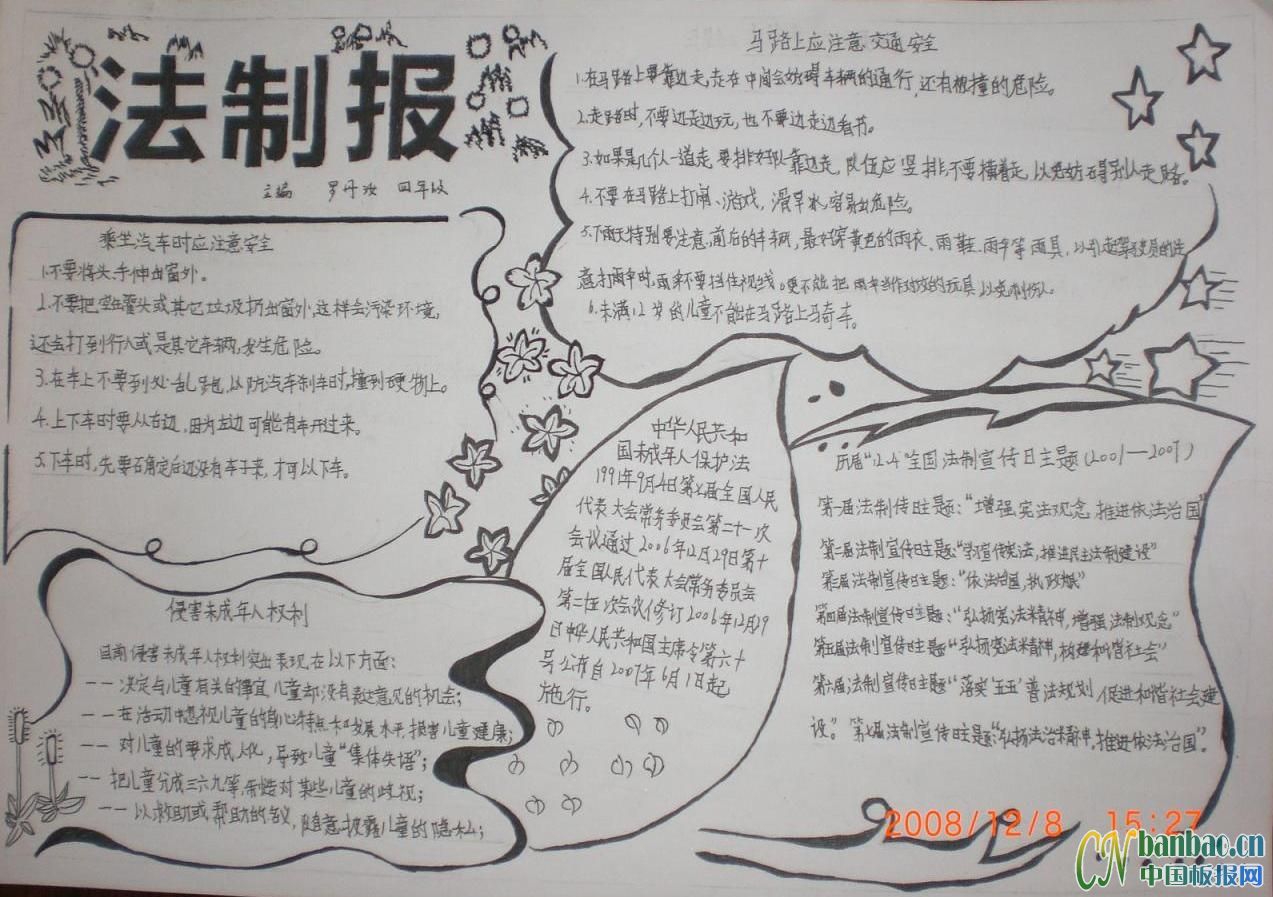 法制报
主编 罗丹 四年级
乘坐汽车时应注意安全
1.不要将头、手伸出窗外。
2.不要把空罐头或其它垃圾扔出窗外,这样会污染环境,
还会打到行人或是其它车辆,发生危险。
3.在车上不要到处乱跑,以防汽车刹车时,撞到硬物上。
4.上下车时要从右边,因为左边可能有车开过来。
5.下车时,先要确定后边没有车子来,才可以下车。
马路上应注意交通安全
1.在马路上要靠边走,走在中间会妨碍车辆的通行,还有被撞的危险。
2.走路时,不要边走边玩,也不要边走边看书。
3.如果是几个人一道走,要排好队靠边走,队伍应竖排,不要横着走,以免妨碍别人走路。
4.不要在马路上打闹、游戏,滑旱冰,容易出危险。
5.下雨天特别要注意,前后的车辆,最好穿黄色的雨衣、雨鞋、雨伞等雨具,以引起驾驶员的注
意打雨伞时,雨伞不要挡住视线。更不能把雨伞当作对攻的玩具,以免刺伤人。
6.未满12岁的儿童不能在马路上骑车。
侵害未成年人权利
目前侵害未成年人权利突出表现在以下方面:
——决定与儿童有关的事宜,儿童却没有表达意见的机会;
——在活动中忽视儿童的身心特点和发展水平,损害儿童健康;
——对儿童的要求成人化,导致儿童“集体失语”;
——把儿童分成三六九等,制造对某些儿童的歧视;
——以救助或帮助的名义,随意披露儿童的隐私;
中华人民共和
国未成年人保护法
1991年9月4日第七届全国人民
代表大会常务委员会第二十一次
会议通过2006年12月29日第十
届全国人民代表大会常务委员会
第二十五次会议修订2006年12月29
日中华人民共和国主席令第六十
号公布自2007年6月1日起
施行。
历届“12·4”全国法制宣传日主题(2001—2007)
第一届法制传日主题:“增强宪法观念 推进依法治国”
第二届法制宣传日主题:“学习宣传宪法,推进民主法制建设”
第三届法制宣传日主题:“依法治国,执政为民”
第四届法制宣传日主题:“弘扬宪法精神,增强法制观念”
第五届法制宣传日主题“弘扬宪法精神,构建和谐社会”
第六届法制宣传日主题“落实‘五五’普法规划 促进和谐社会建
设”。第七届法制宣传日主题:“弘扬法治精神,推进依法治国”。
2008/12/8 15:27
CN banbao.cn
中国板报网